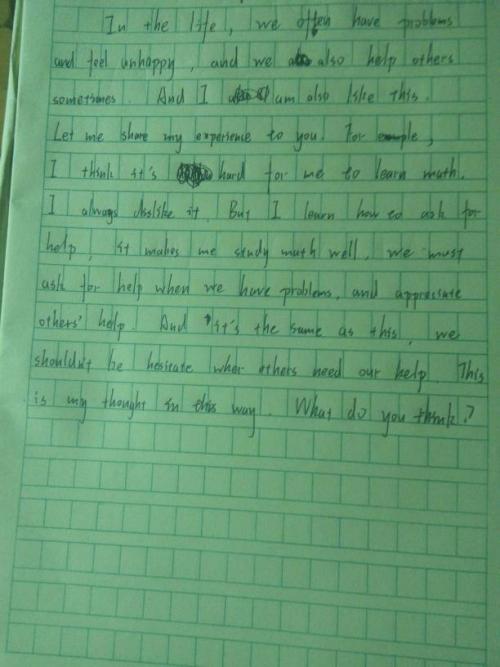 In the life, we often have problems
and feel unhappy, and we also help others
sometimes. And I am also like this.
Let me share my experience to you. For example,
I think it's hard for me to learn math.
I always dislike it. But I learn how to ask for
help, it makes me study math well, we must
ask for help when we have problems, and appreciate
others' help. And it's the same as this, we
shouldn't be hesitate when others need our help. This
is my thought in this way. What do you think?